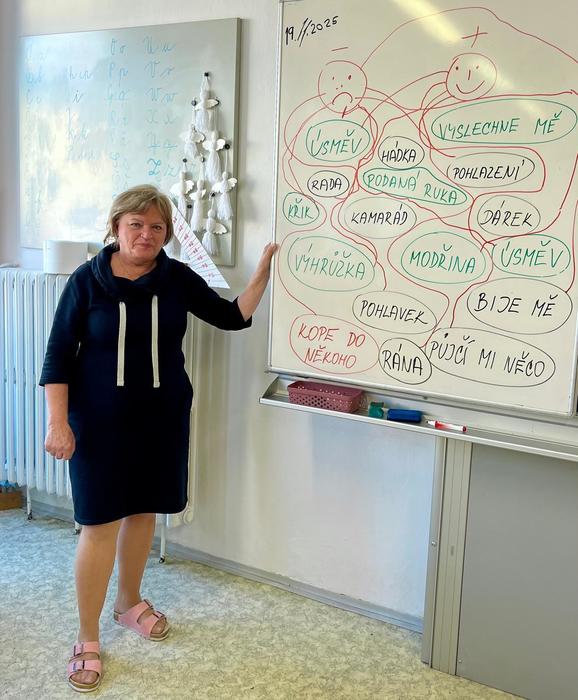 O o U u
P p V v
19.11.2025
− +
ÚSMĚV
VYSLECHNE MĚ
HÁDKA
POHLAZENÍ
RADA
PODANÁ RUKA
KŘIK
KAMARÁD
DÁREK
VÝHRŮŽKA
MODŘINA
ÚSMĚV
POHLAVEK
BIJE MĚ
KOPE DO
NĚKOHO
RÁNA
PŮJČÍ MI NĚCO